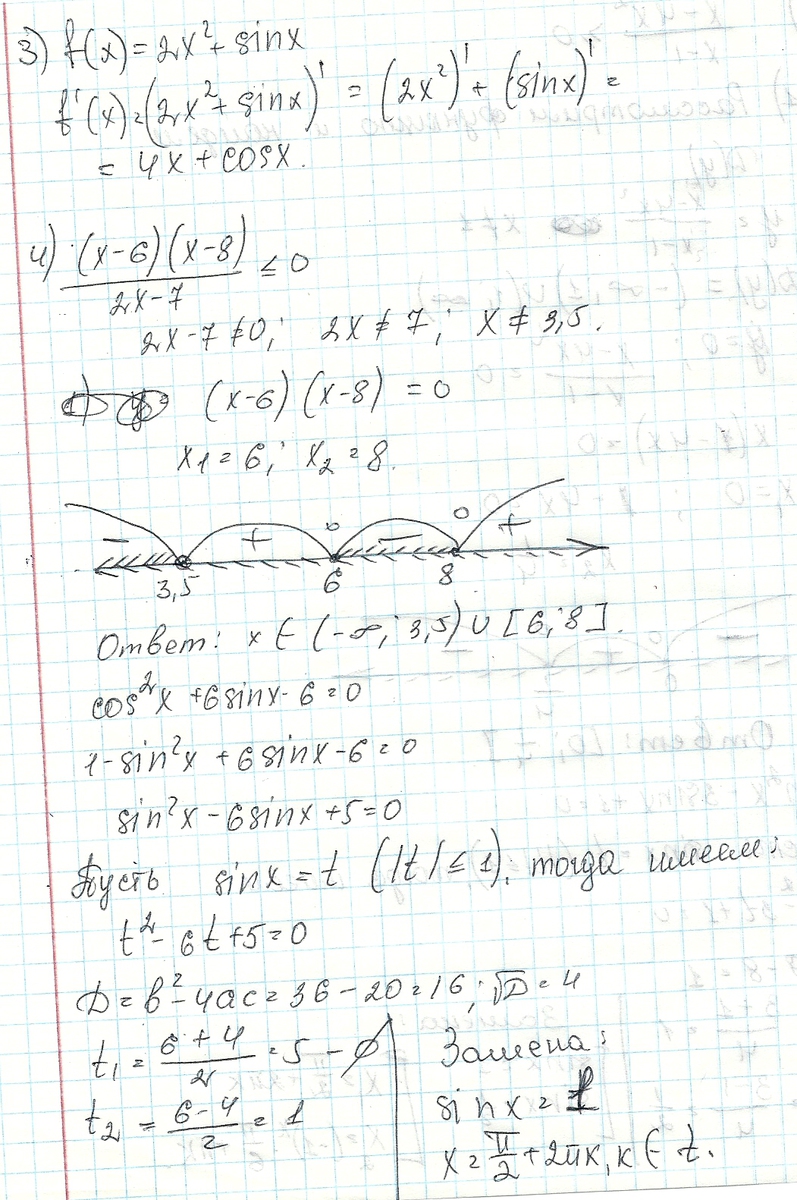 3) f(x) = 2x² + sinx
f'(x) = (2x² + sinx)' = (2x²)' + (sinx)' =
= 4x + cosx.
4) (x-6)(x-8) / 2x-7 ≤ 0
2x-7≠0; 2x≠7; x≠3,5.
(x-6)(x-8) = 0
x1 = 6; x2 = 8.
- + 0 - 0 +
3,5 6 8
Ответ: x ∈ (-∞; 3,5) ∪ [6; 8].
cos²x + 6sinx - 6 = 0
1-sin²x + 6sinx - 6 = 0
sin²x - 6sinx + 5 = 0
Пусть sinx = t (|t| ≤ 1), тогда имеем:
t² - 6t + 5 = 0
D = b² - 4ac = 36 - 20 = 16; √D = 4
t1 = (6 + 4) / 2 = 5 - ∅
t2 = (6 - 4) / 2 = 1
Замена:
sinx = 1
x = π/2 + 2πk, k ∈ Z.